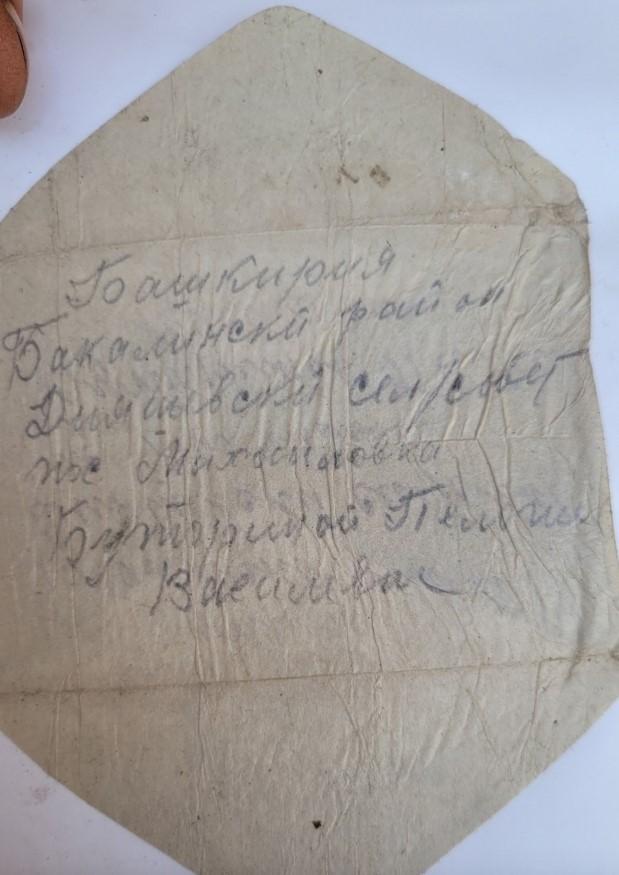 Башкирия
Бакалински район
Дияшевски сел/совет
пос Михайловка
Буториной Пелагии
Василевне